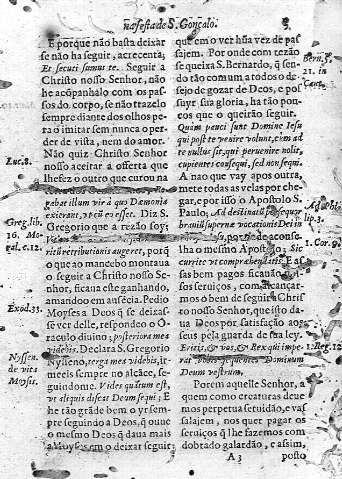 na festa de S. Gonçalo.
E porque não basta deixar
se não ha seguir, acrecenta,
Et secuti sumus te. Seguir a
Christo nosso Senhor, não
he acõpanhalo com os pas
sos do corpo, se não trazelo
sempre diante dos olhos pe
ra o imitar sem nunca o per
der de vista, nem do amor.
Não quiz Christo Senhor
nosso aceitar a offerta que
lhe fez o outro que curou na
Luc. 8.
gabat illum vir à quo Dæmonia
exierant, vt cũ eo esset. Diz S.
Gregorio que a rezão foy;
Greg. lib.
16. Mo
ral. c. 12.
ritũ retributionis augeret, porq̃
o que ao mancebo montaua
o seguir a Christo nosso Se-
nhor, ficaua este ganhando,
amandoo em ausẽcia. Pedio
Moyses a Deos q̃ se deixas-
se ver delle, respondeo o O-
raculo diuino; posteriora mea
videbis. Declara S. Gregorio
Nysseno, terga mea videbis, ir
meeis sempre no alcãce, se-
guindome. Vides quãtum est,
vt aliquis dicat Deum sequi; E
he tão grãde bem o yr sem-
pre seguindo a Deos, q̃ ouue
o mesmo Deos q̃ daua mais
a Moyses em o deixar seguir
Exod. 33.
Nyssen.
de vita
Moysis.
que em o ver hũa vez de pas
sajem. Por onde com rezão
se queixa S. Bernardo, q̃ sen-
do tão comum a todos o de-
sejo de gozar de Deos, e pos
suyr sua gloria, ha tão pou-
cos que o queirão seguir.
Quàm pauci sunt Domine Iesu
qui post te venire volunt, cùm ad
te nullus sit, qui peruenire nolit,
cupientes consequi, sed non sequi.
A nao que vay apos outra,
mete todas as velas por che-
gar, e por isso o Apostolo S.
Paulo; Ad destinatũ persequor
brauiũ supernæ vocationis Dei in
lho o mesmo Apostolo; Sic
currite vt comprehendatis. E as
sas bem pagos ficauão
sos seruiços, com alcançar-
mos o bem de seguir a Chris
to nosso Senhor, que isto da
ua Deos por satisfação aos
seus pela guarda de sua ley.
Eritis, & vos, & Rex qui impe-
rat vobis sequentes Dominum
Deum vestrum.
Porem aquelle Senhor, a
quem como creaturas deue
mos perpetua seruidão, e vas
salajem, nos quer pagar os
seruiços q̃ lhe fazemos com
dobrado galardão, e assim,
Bern. s.
21. in
Cant.
lip. 3.
1. Cor. 9.
1. Reg. 12
A 3
posto